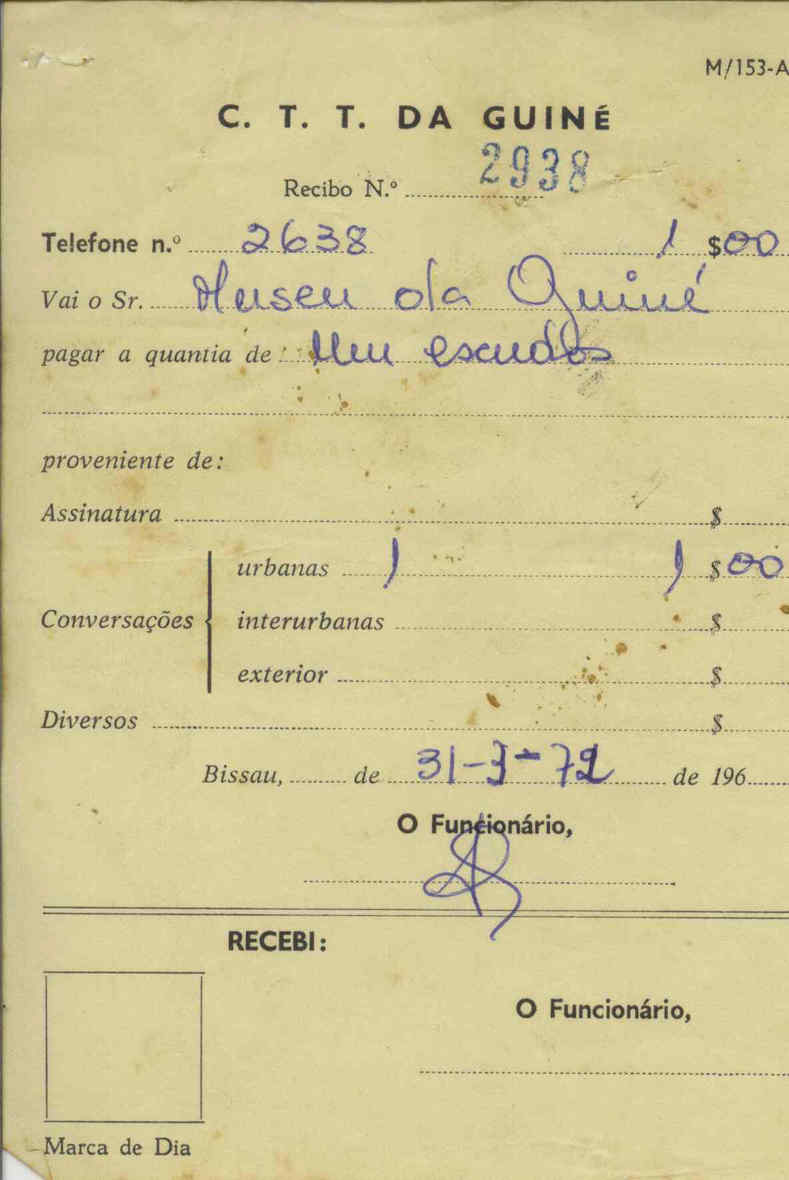 M/153-A
C. T. T. DA GUINÉ
Recibo N.º 2938
Telefone n.º 2638 1 $00
Vai o Sr. Museu da Guiné
pagar a quantia de Um escudos
proveniente de:
Assinatura $
urbanas 1 1 $00
Conversações interurbanas $
exterior $
Diversos $
Bissau, de 31-3-72 de 196
O Funcionário,
RECEBI:
O Funcionário,
Marca de Dia